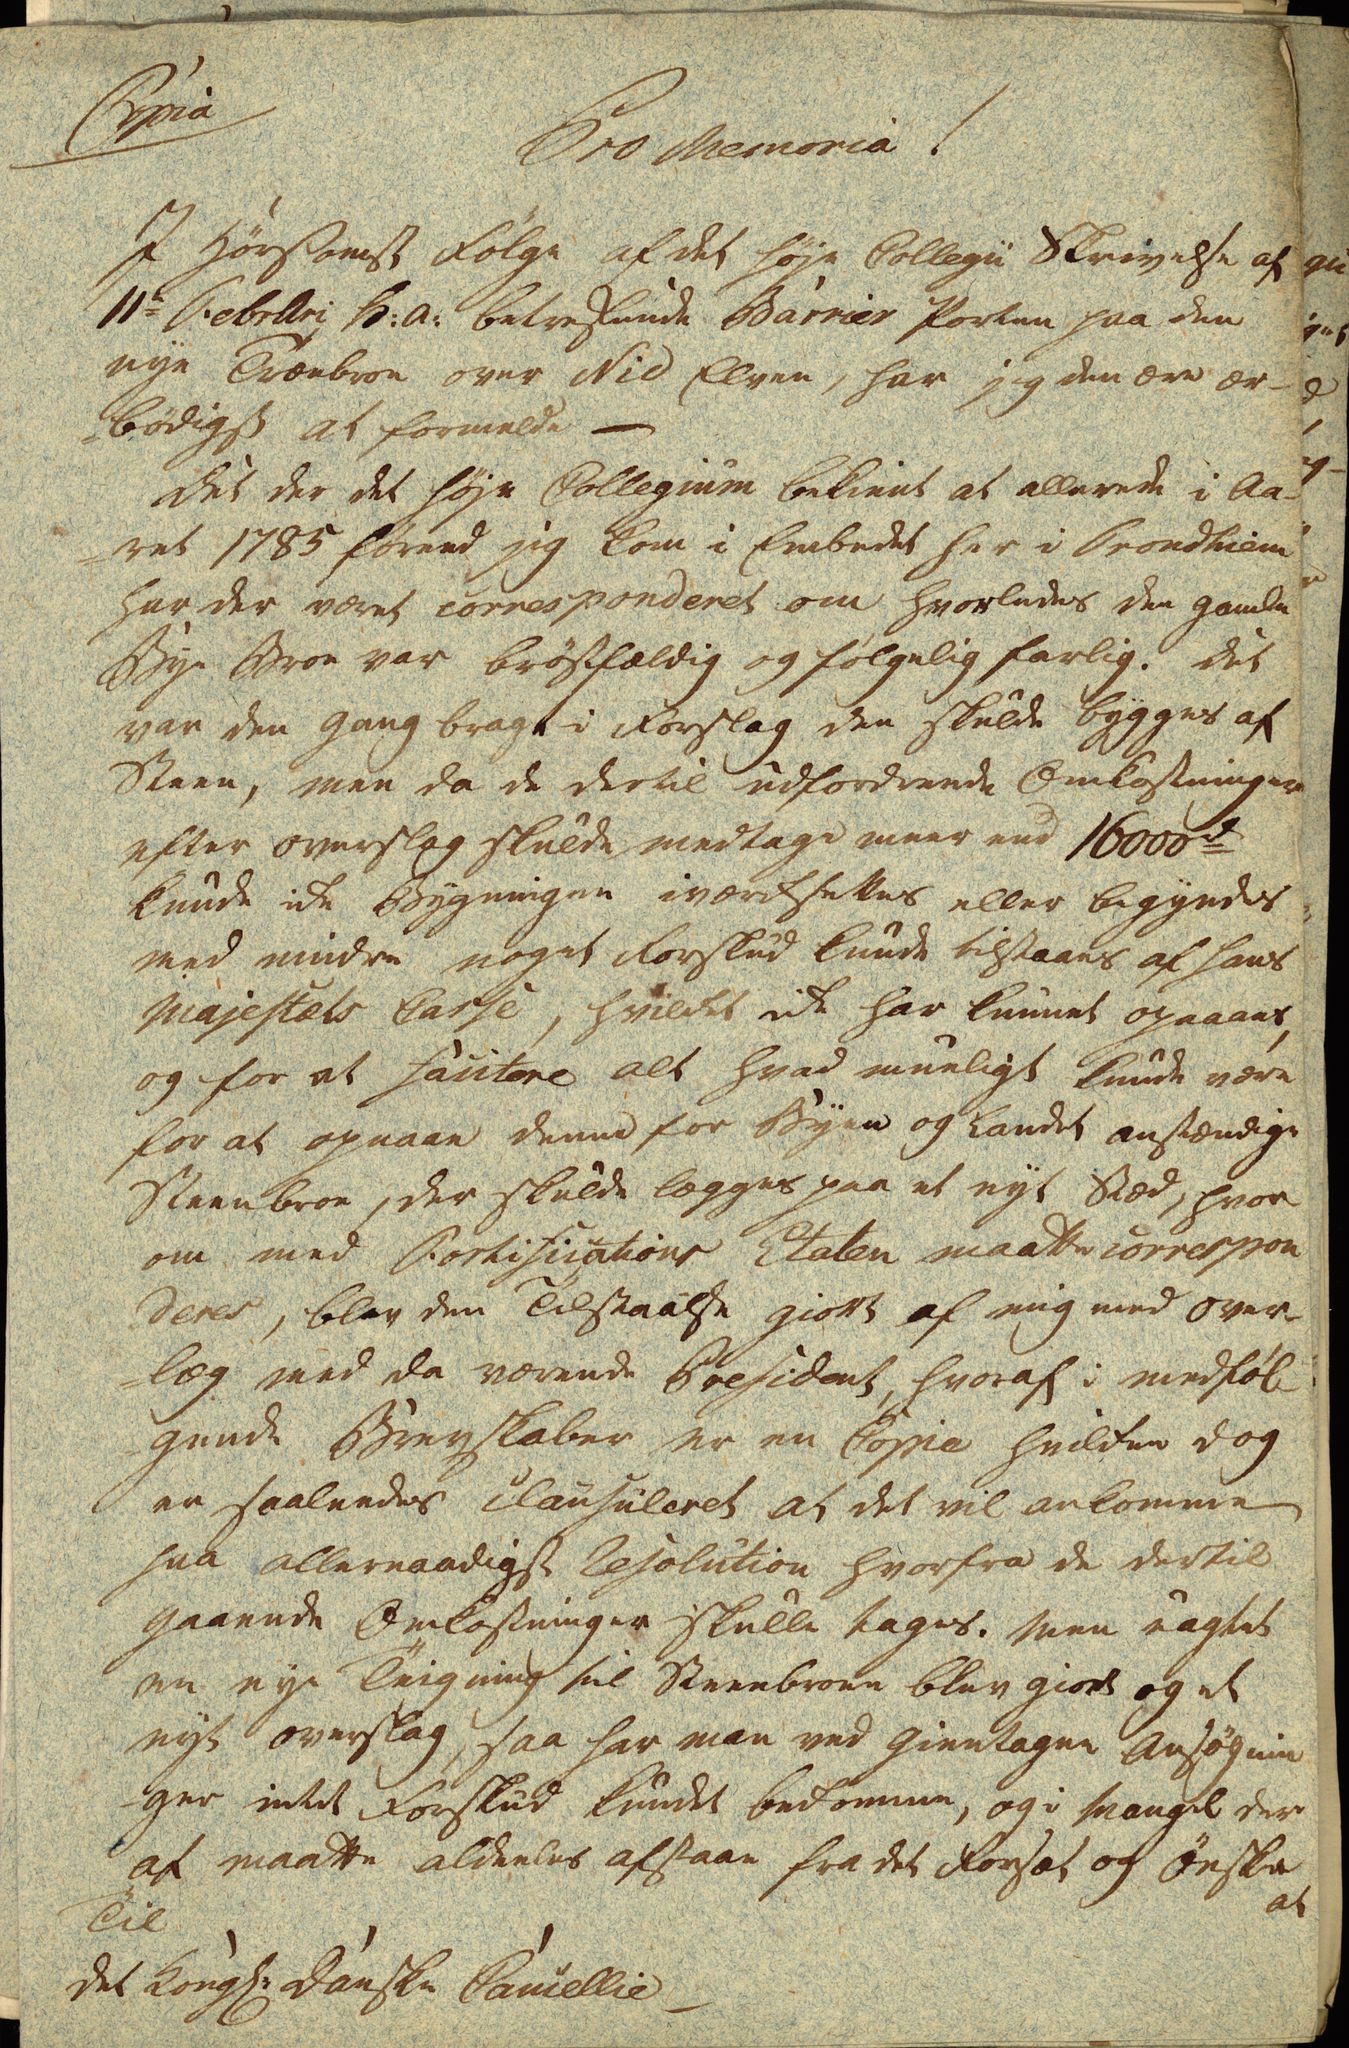 Copia
Pro Memoria!
I Hörsomst Fölge af det høje Collegii Skrivelse af
11te Febrüari h: a: betreffende Barrier Porten paa den
nye Træebroe over Nid Elven, har jeg den ære ær-
-bödigst at formelde —
Det der det høje Collegium bekient at allerede i Aa-
-ret 1785 førend jeg kom i Embedet her i Trondhiem
har der været corresponderet om hvorledes den gamle
Bye Broe var bröstfældig og følgelig farlig. Det
var den Gang bragt i Forslag den skulde bygges af
Steen, men da de dertil udfordrende Omkostninger
efter overslag skulde medtage meer end 16000 rd
kunde ike Bygningen iværksettes eller begyndes
med mindre noget Forskud kunde tilstaaes af Hans
Majestæts Casse, hvilket ike har kunnet opnaaes,
og for at faütere alt hvad mueligt kunde være
for at opnaae denne for Byen og Landet anstændige
Steenbroe, der skulde lægges paa et nyt Sted, hvor
om med Fortifications Etaten maatte correspon
deres, blev den Tilstaaelse giort af mig med over-
-læg med da værende President, hvoraf i medföl-
-gende Brevskaber er en Copie hvilken dog
er saaledes clausuleret at det vil ankomme
paa allernaadigst Resolution hvorfra de dertil
gaaende Omkostninger skulle tages. Men uagtet
en nye Teigning til Steenbroen blev giort og et
nyt overslag, saa har man ved gientagne Ansøgnin
-ger intet Forskud kundet bekomme, og i Mangel der
af maatte aldeeles afstaae fra det Forsæt og Önske
at
Til
det Kongl: Danske Cancellie